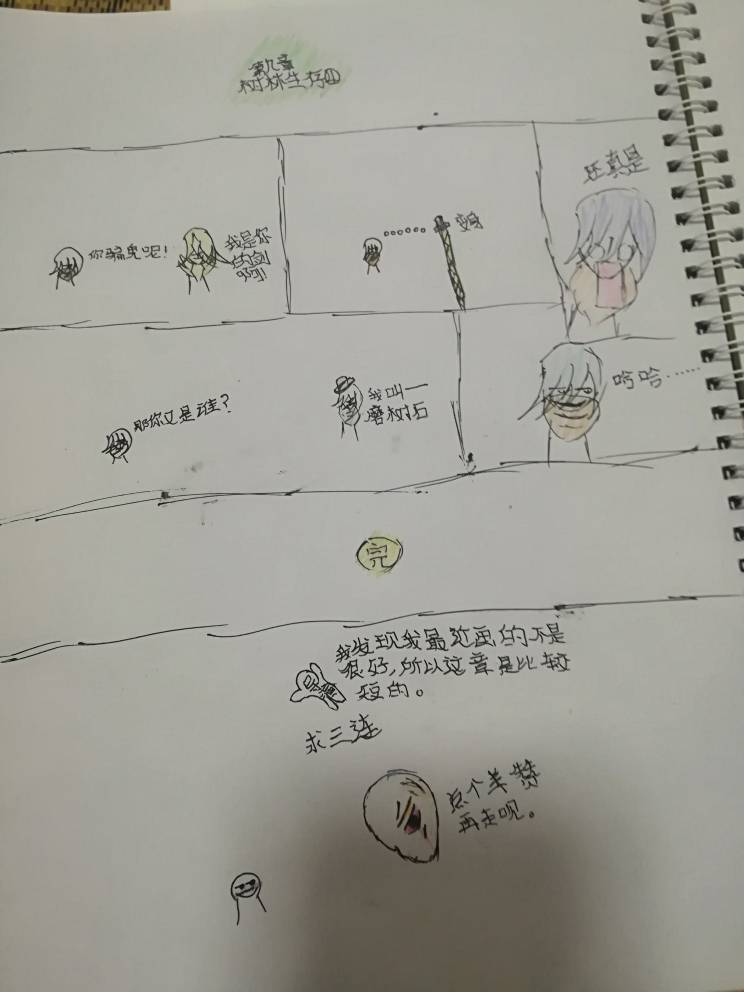 第九章
树林生存①
你骗鬼呢!
我是你
的剑
啊!
……
变身
还真是
那你又是谁?
我叫一
磨树石
哈哈……
完
我发现我最近画的不是
很好,所以这章是比较
短的。
求三连
点个关赞
再走呗。